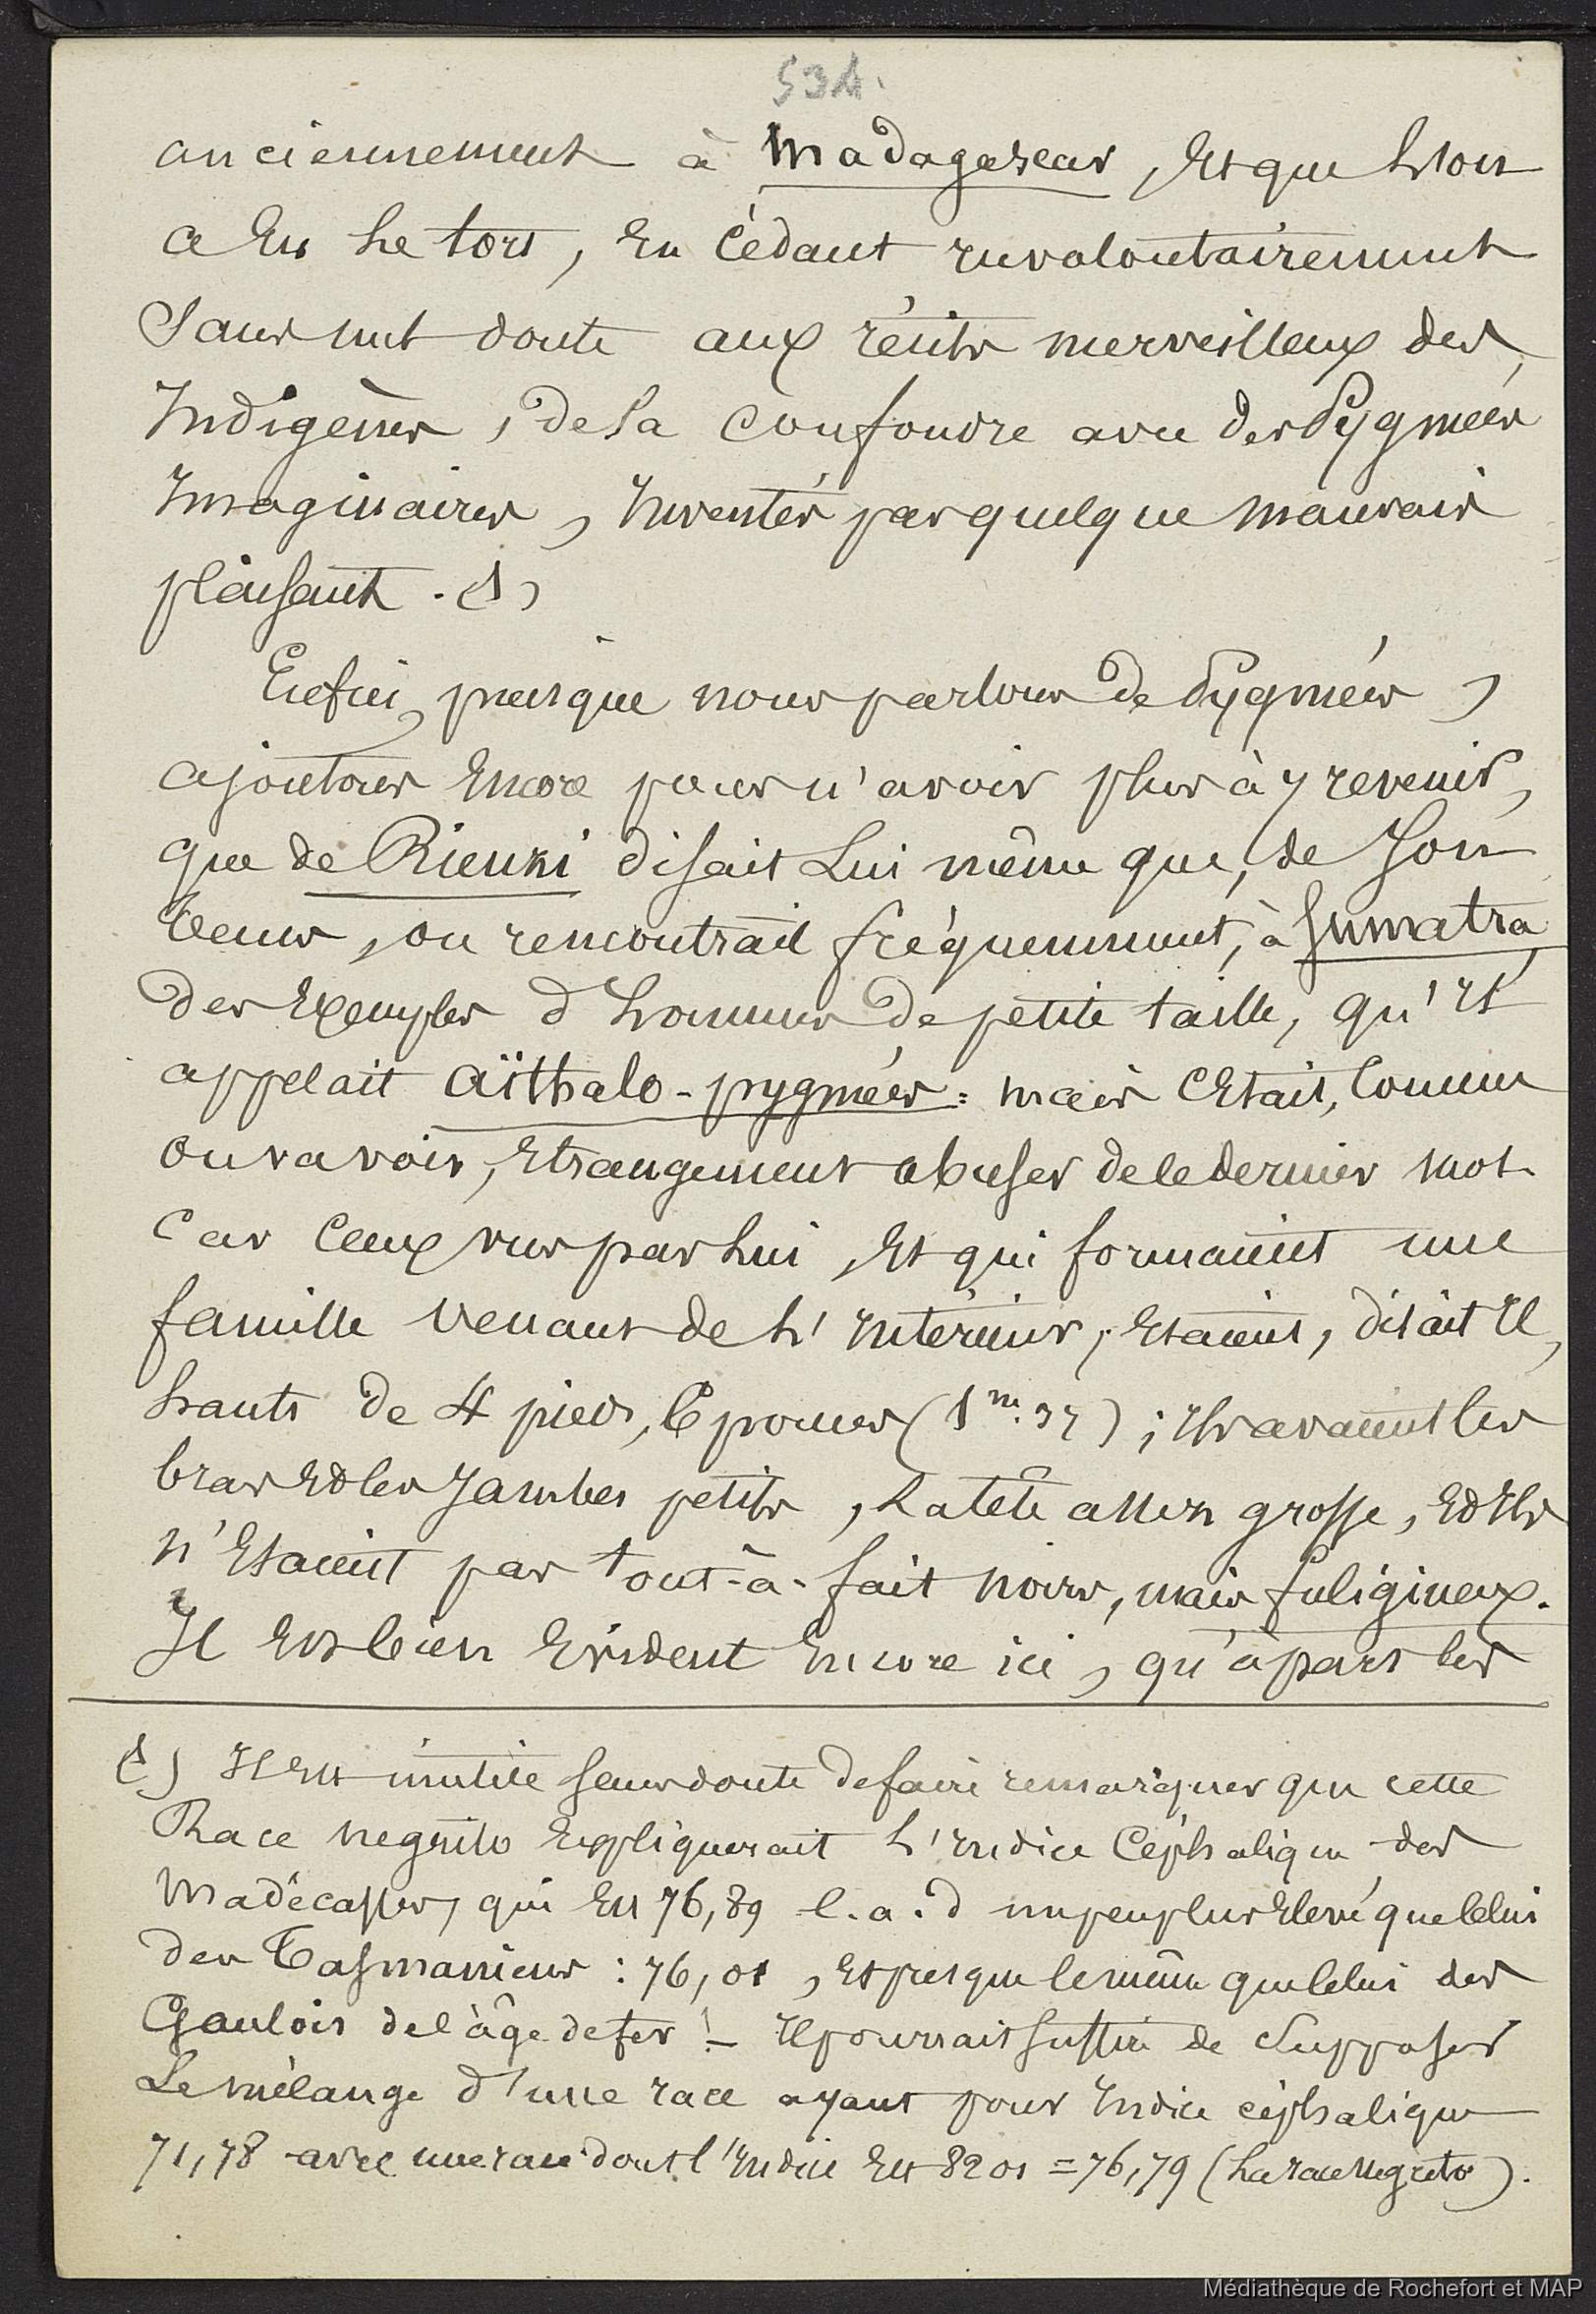 534.
anciennement à Madagascar, et que l'on
a eu le tort, en cédant involontairement
sans nul doute aux récits merveilleux des
Indigènes, de la confondre avec des Pygmées
Imaginaires, Inventés par quelque mauvais
plaisant. (1)
Enfin, puisque nous parlons de Pygmées,
ajoutons encore pour n'avoir plus à y revenir,
que de Rienzi disait lui même que, de son
temps, on rencontrait fréquemment, à Sumatra
des Exemples d'hommes de petite taille, qu'il
appelait aïthalo-pygmées: mais C'était, Comme
on va voir, Etrangement abuser de ce dernier mot
Car Ceux vus par lui, et qui formaient une
famille venant de l'Intérieur, étaient, disait Il,
hauts de 4 pieds, 6 pouces (1m.37); Ils avaient les
bras et les Jambes petits, la tête assez grosse, et Ils
n'étaient pas tout-à-fait noirs, mais fuligineux.
Il est bien Evident Encore ici, qu'à part les
(1) Il est inutile sans doute de faire remarquer que cette
Race negrito Expliquerait l'Indice Céphalique des
Madécasses, qui est 76,89 c.a.d un peu plus Elevé que celui
des Tasmaniens: 76,01, et presque le même que celui des
Gaulois de l'âge de fer! - Il pourrait suffire de Supposer
Le mélange d'une race ayant pour Indice céphalique
71,78 avec une race dont l'Indice est 82 01 = 76,79 (La race Negrito).
Médiathèque de Rochefort et MAP